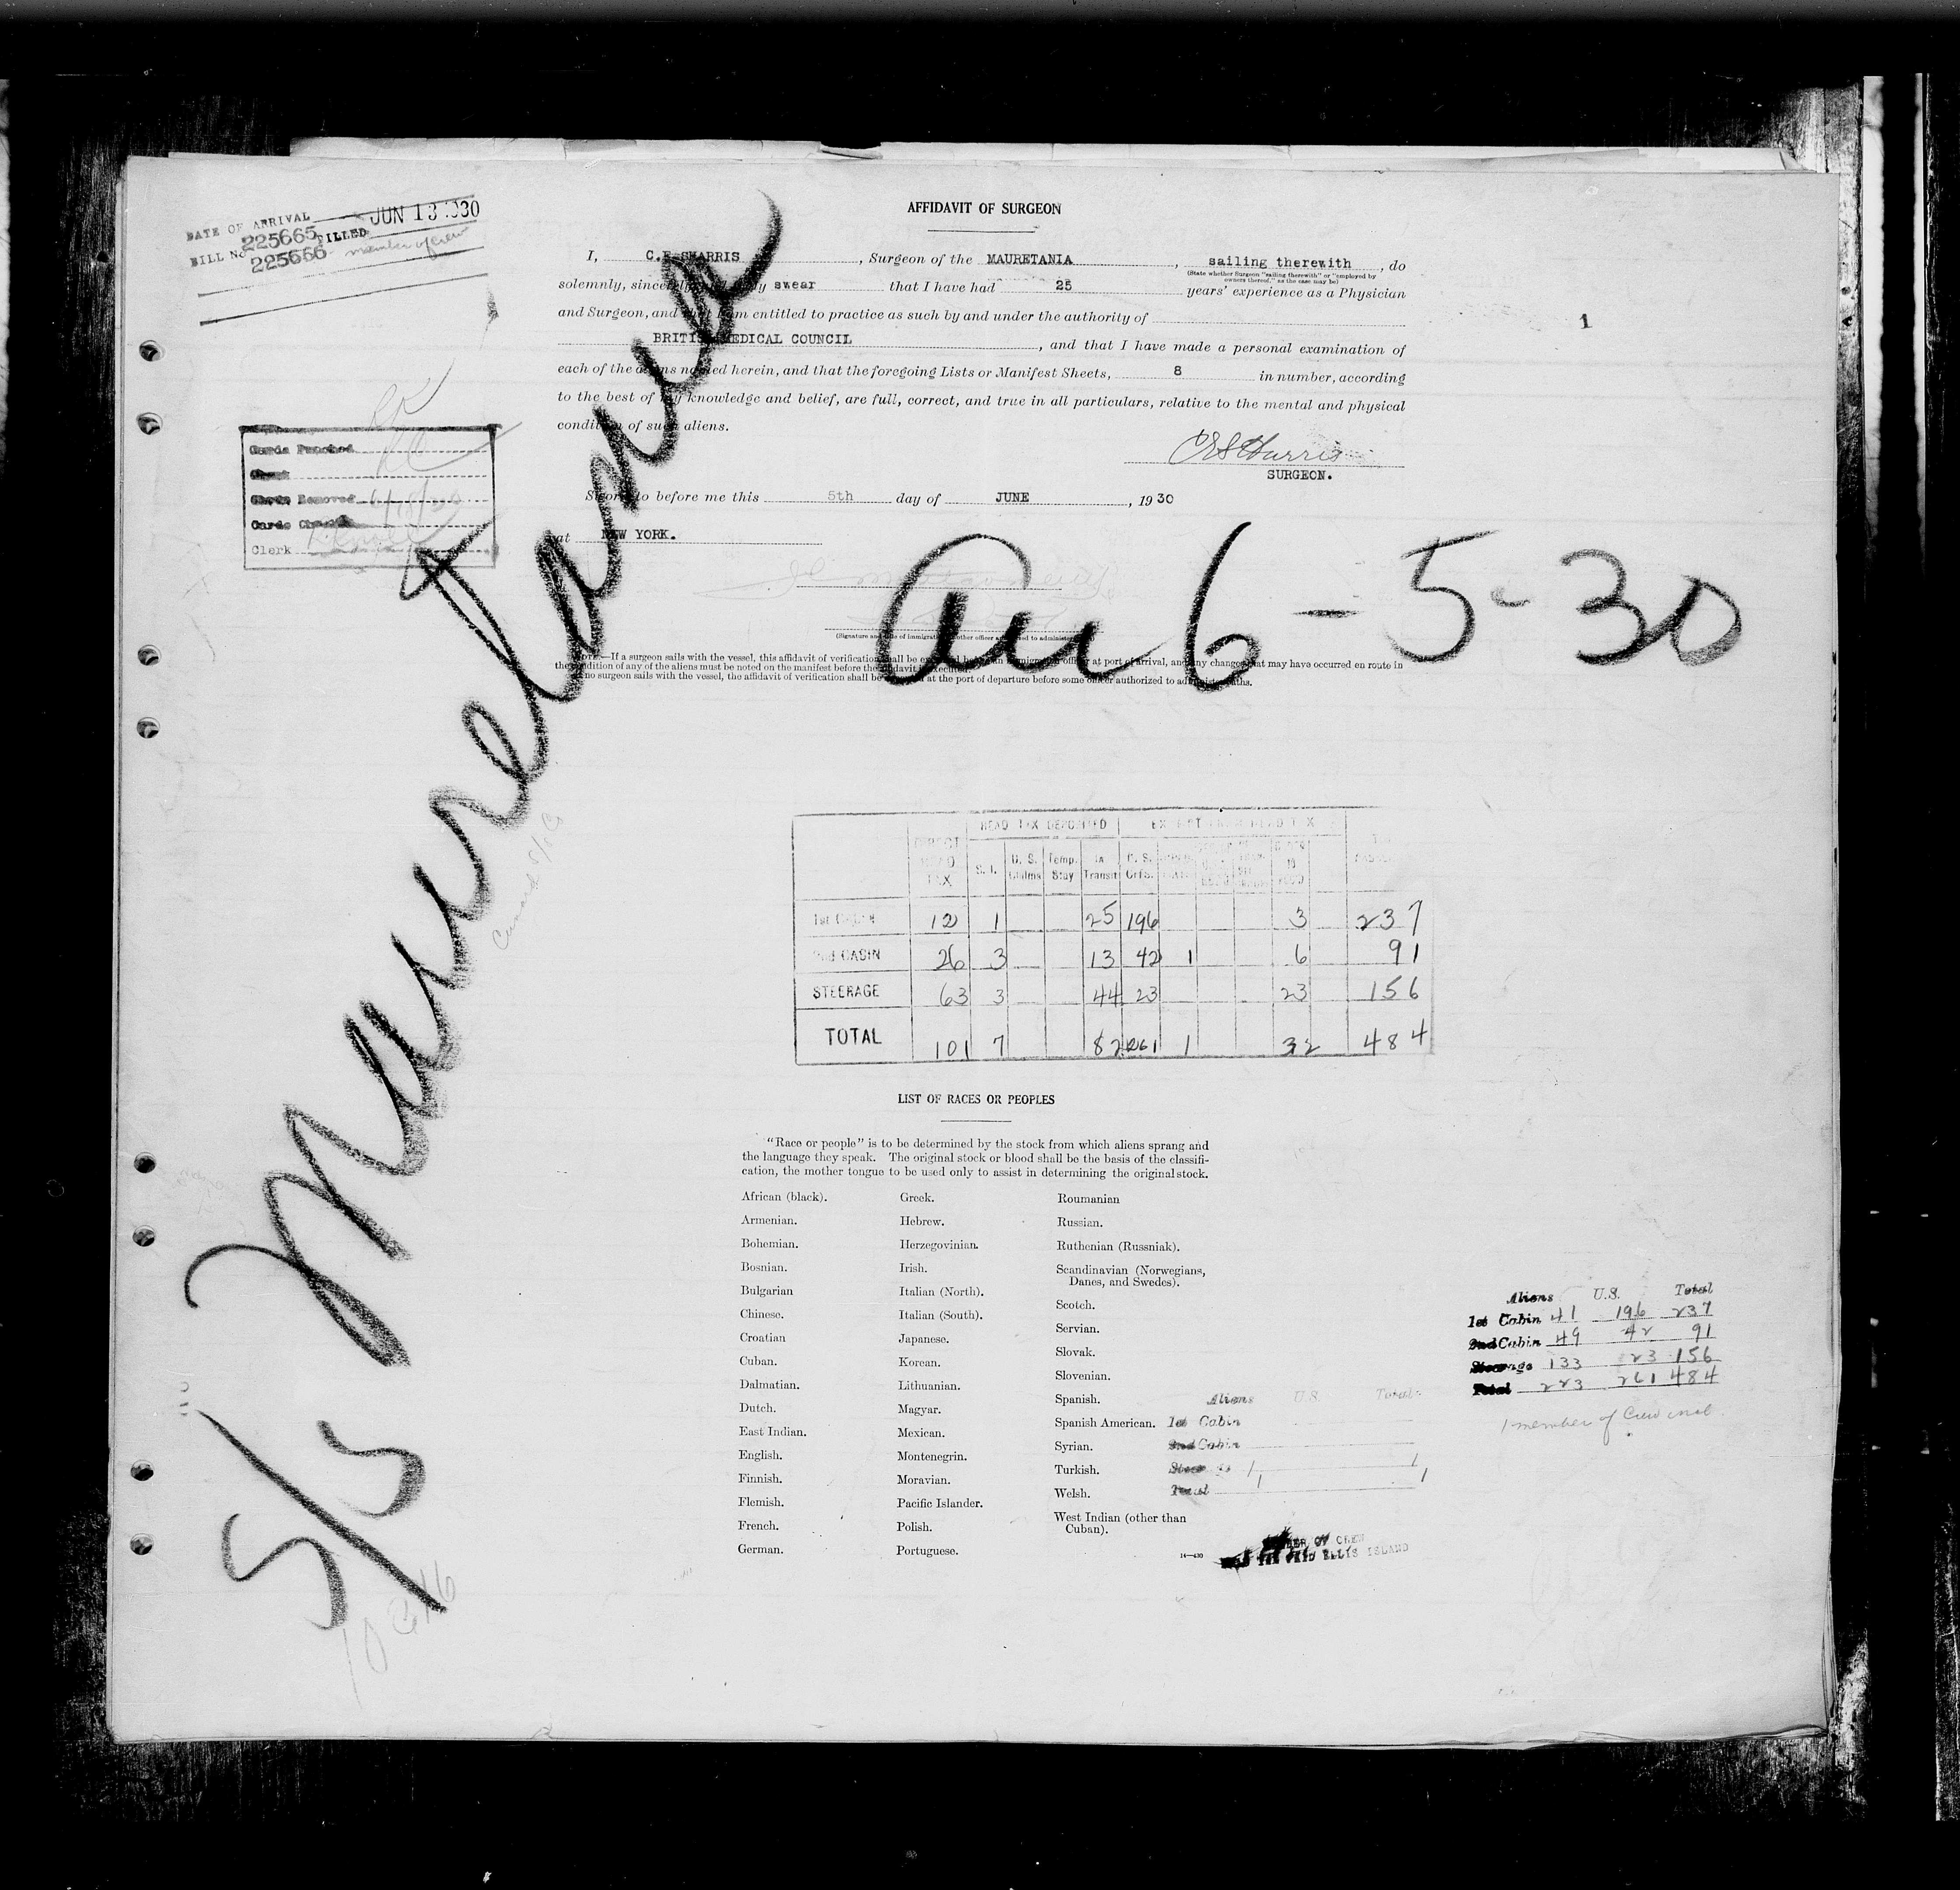 DATE OF ARRIVAL JUN 13 1930
BILL No. 225665 FILLED
225666 member of crew
AFFIDAVIT OF SURGEON
I, C.E. SHARRIS, Surgeon of the MAURETANIA, sailing therewith, do
(State whether Surgeon "sailing therewith" or "employed by
owners thereof," as the case may be)
solemnly, sincerely swear that I have had 25 years' experience as a Physician
and Surgeon, and that I am entitled to practice as such by and under the authority of
BRITISH MEDICAL COUNCIL, and that I have made a personal examination of
each of the aliens named herein, and that the foregoing Lists or Manifest Sheets, 8 in number, according
to the best of my knowledge and belief, are full, correct, and true in all particulars, relative to the mental and physical
condition of such aliens.
SURGEON.
Sworn to before me this 5th day of JUNE, 1930
at NEW YORK.
1
Cards Punched
Cards Removed 6/18/30
Clerk
S/S Mauretania
Arr 6-5-30
(Signature and title of immigration or other officer authorized to administer oaths)
NOTE.—If a surgeon sails with the vessel, this affidavit of verification shall be executed before an immigration officer at port of arrival, and any changes that may have occurred en route in
the condition of any of the aliens must be noted on the manifest before the affidavit is executed.
If no surgeon sails with the vessel, the affidavit of verification shall be executed at the port of departure before some officer authorized to administer oaths.
Cunard S/S Co
HEAD TAX DEPOSITED EXEMPT FROM HEAD TAX
DIRECT HEAD TAX S. I. U. S. Claims Temp. Stay In Transit U. S. Citz.
1st CABIN 12 1 25 196 3 237
2nd CABIN 26 3 13 42 1 6 91
STEERAGE 63 3 44 23 23 156
TOTAL 101 7 82 261 1 32 484
LIST OF RACES OR PEOPLES
"Race or people" is to be determined by the stock from which aliens sprang and
the language they speak. The original stock or blood shall be the basis of the classifi-
cation, the mother tongue to be used only to assist in determining the original stock.
African (black).
Armenian.
Bohemian.
Bosnian.
Bulgarian
Chinese.
Croatian
Cuban.
Dalmatian.
Dutch.
East Indian.
English.
Finnish.
Flemish.
French.
German.
Greek.
Hebrew.
Herzegovinian.
Irish.
Italian (North).
Italian (South).
Japanese.
Korean.
Lithuanian.
Magyar.
Mexican.
Montenegrin.
Moravian.
Pacific Islander.
Polish.
Portuguese.
Roumanian
Russian.
Ruthenian (Russniak).
Scandinavian (Norwegians,
Danes, and Swedes).
Scotch.
Servian.
Slovak.
Slovenian.
Spanish.
Spanish American.
Syrian.
Turkish.
Welsh.
West Indian (other than
Cuban).
14—430
Aliens U.S. Total
1st Cabin
2nd Cabin
Steerage 1 1
Total 1 1
MEMBER OF CREW
ELLIS ISLAND
Aliens U.S. Total
1st Cabin 41 196 237
2nd Cabin 49 42 91
Steerage 133 23 156
Total 223 261 484
1 member of Crew